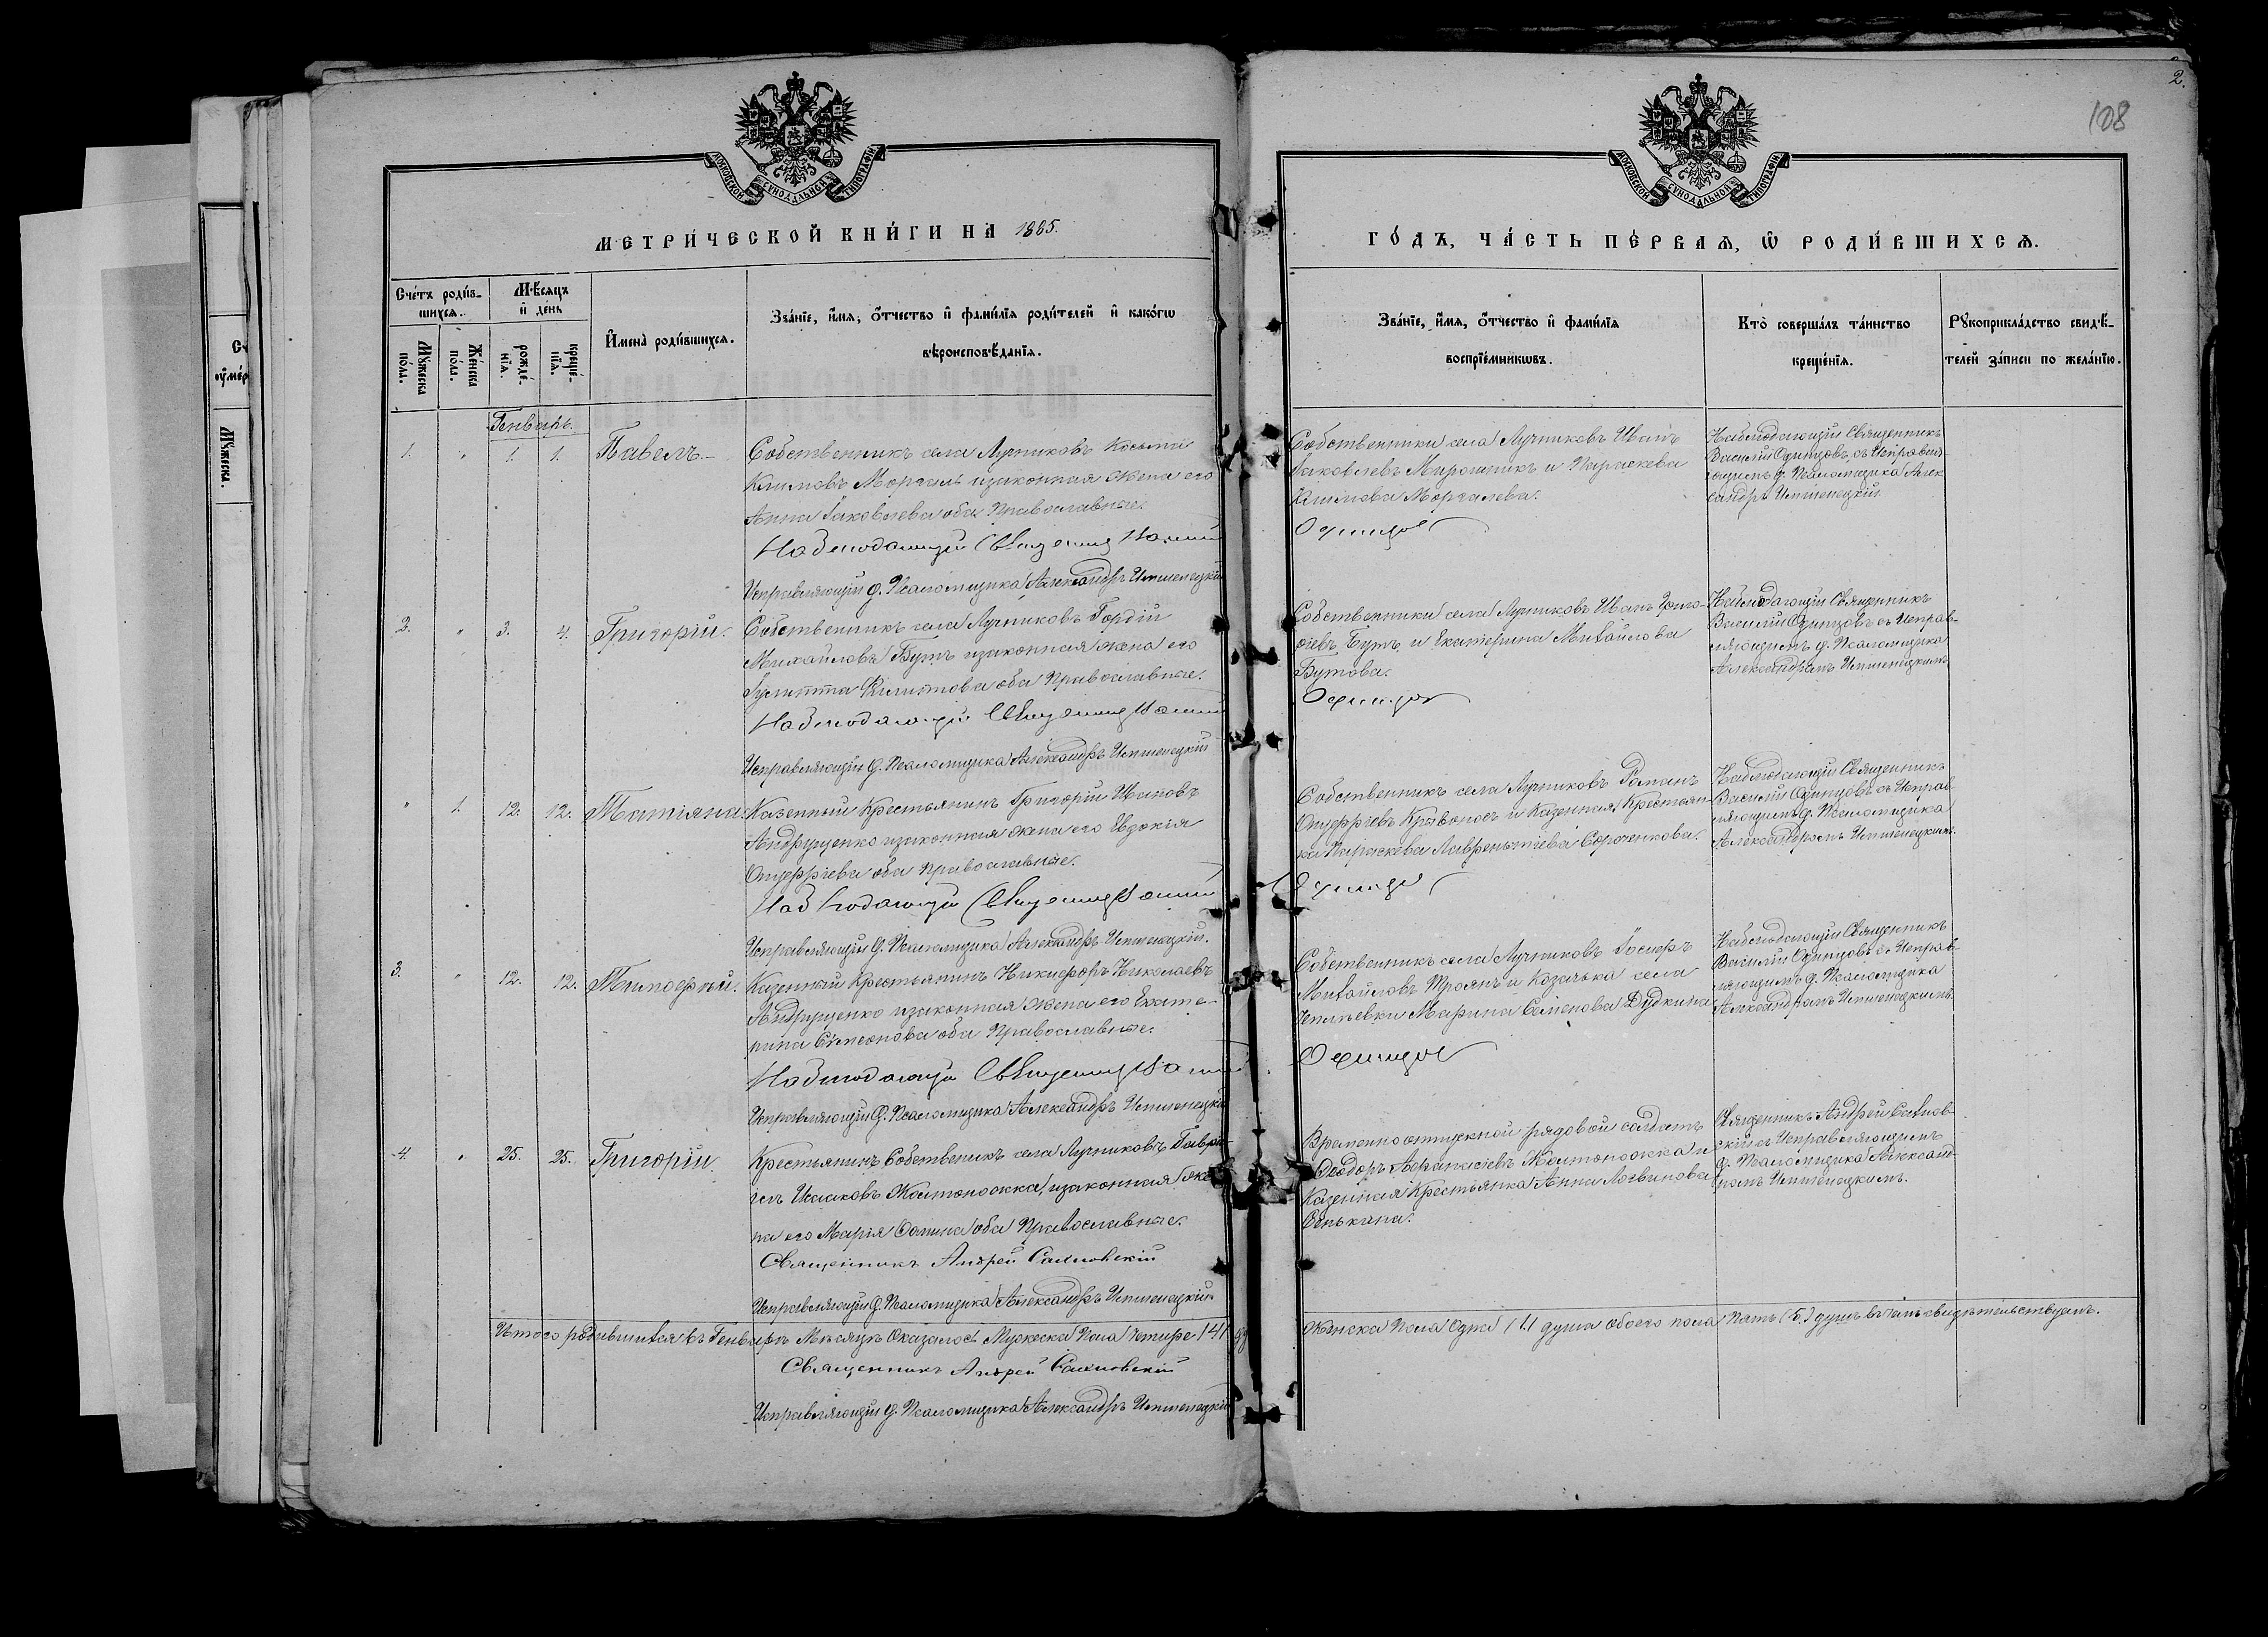 2.
108
МОСКОВСКОЙ СѴНОДАЛЬНОЙ ТИПОГРАФІИ
МОСКОВСКОЙ СѴНОДАЛЬНОЙ ТИПОГРАФІИ
МЕТРИ́ЧЕСКОЙ КНИ́ГИ НА 1885.
ГО́ДЪ, ЧА́СТЬ ПЕ́РВАѦ, Ѡ҃ РОДИ́ВШИХСѦ.
Сче́тъ роди́в-
шихсѧ.
Мѣ́сяцъ
и҆ де́нь
Мꙋ́жеска
по́ла.
Же́нска
по́ла.
рожде́-
нїѧ.
креще́-
нїѧ.
И҆мена̀ роди́вшихсѧ.
Зва́нїе, и҆́мѧ, ѻ҆́тчество и҆ фами́лїѧ роди́телей и҆ како́гѡ
вѣроисповѣ́данїѧ.
Зва́нїе, и҆́мѧ, ѻ҆́тчество и҆ фами́лїѧ
воспрїе́мникѡвъ.
Кто̀ соверша́лъ та́инство
креще́нїѧ.
Рꙋкоприкла́дство свидѣ́-
телей за́писи по жела́нїю.
Мꙋ́жеска.
Генварь.
1. " 1. 1. Павелъ.
Собственникъ села Лучниковъ Косьма
Климовъ Моргаль и законная жена его
Анна Іаковлева оба Православные.
Наблюдающій Священник
Исправляющій д. Псаломщика Александръ
Собственники села Лучниковъ Иванъ
Іаковлевъ Мирошникъ и Параскева
Климова Моргалева.
Одинцов
Наблюдающій Священникъ
Василій Одинцовъ, съ Исправля-
ющимъ д. Псаломщика Алек
сандръ
2. " 3. 4. Григорій.
Собственникъ села Лучниковъ Гордій
Михайловъ Бутъ и законная жена его
Іулитта Филиппова оба Православные.
Наблюдающій Священник
Исправляющій д. Псаломщика Александръ
Собственники села Лучниковъ Иванъ Григо-
ріевъ Бутъ и Екатерина Михайлова
Бутова.
Одинцов
Наблюдающій Священникъ
Василій Одинцовъ съ Исправ-
ляющимъ д. Псаломщика
Александромъ
" 1. 12. 12. Татіяна.
Казенный Крестьянинъ Григорій Ивановъ
Андрущенко и законная жена его Евдокія
Онуфріева оба православные.
Наблюдающій Священник
Исправляющій д. Псаломщика Александръ
Собственникъ села Лучниковъ Романъ
Онуфріевъ Кривоносъ и Казенная Крестьян-
ка Параскева Лаврентіева
Одинцов
Наблюдающій Священникъ
Василій Одинцовъ съ Исправ-
ляющимъ д. Псаломщика
Александромъ
3. " 12. 12. Тимоѳей.
Казенный Крестьянинъ Никифоръ Николаевъ
Андрущенко и законная жена его Екате-
рина Симеонова оба Православные.
Наблюдающій Священник
Исправляющій д. Псаломщика Александръ
Собственникъ села Лучниковъ Іосифъ
Михайловъ Троянъ и Козачька села
Марина Семенова Дудкина
Одинцов
Наблюдающій Священникъ
Василій Одинцовъ съ Исправ-
ляющимъ д. Псаломщика
Александромъ
4. " 25. 25. Григорій.
Крестьянинъ Собственикъ села Лучниковъ Гаврі-
илъ Исааковъ Жолтоножка, и законная же-
на его Марія Ѳомина оба Православные.
Священникъ Андрей Сахновскій
Исправляющій д. Псаломщика Александръ
Временно отпускной рядовой солдатъ
Ѳеодоръ Аѳанасіевъ Жолтоножка и
Казенная Крестьянка Анна Логвинова
Священникъ Андрей Сахнов-
скій съ Исправляющимъ
д. Псаломщика Александ-
ромъ
Итого родившихся въ Генварѣ Мѣсяцѣ Оказалось Мужеска Пола Четыре /4/
Женска Пола Одна /1/ душа обоего пола Пять (5.) душъ въ чемъ свидѣтельствуемъ.
Священникъ Андрей Сахновскій
Исправляющій д. Псаломщика Александръ